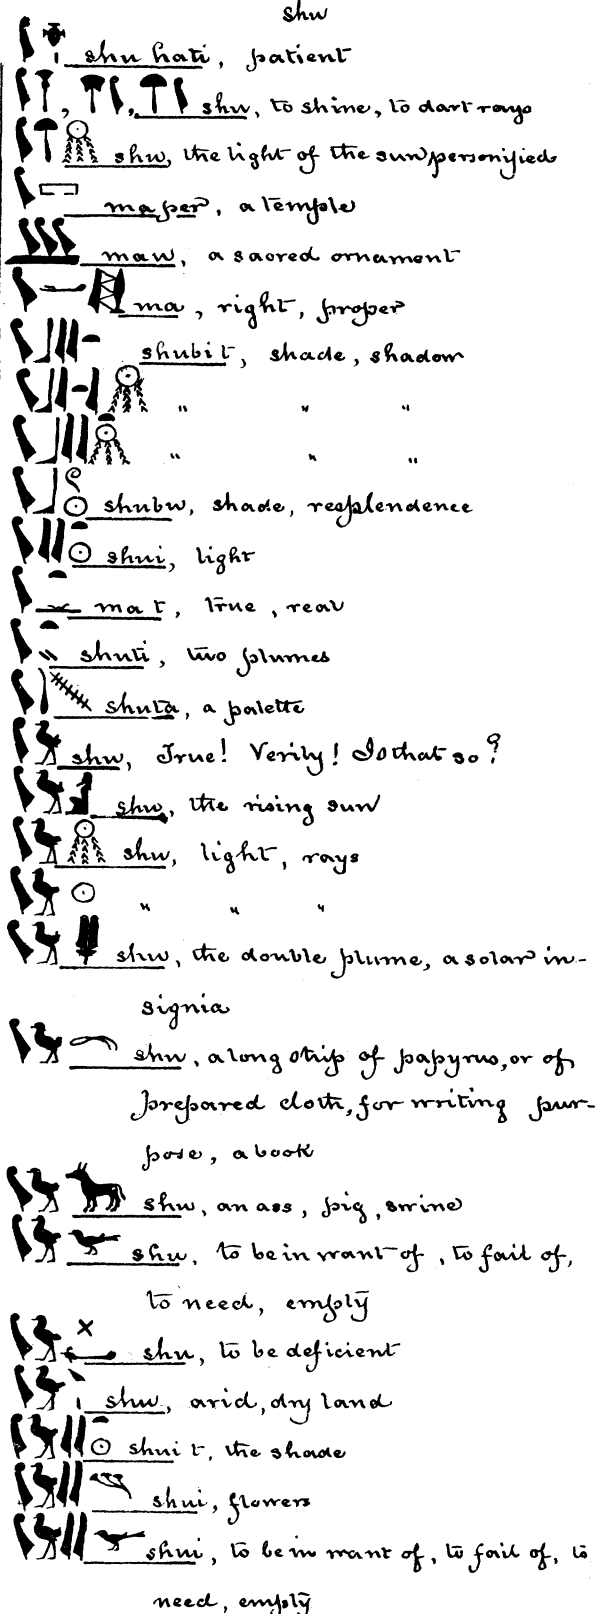 shu
shu hati, patient
, , shu, to shine, to dart rays
shu, the light of the sun personified
ma per, a temple
mau, a sacred ornament
ma, right, proper
shubit, shade, shadow
" " "
" " "
shubu, shade, resplendence
shui, light
ma t, true, real
shuti, two plumes
shuta, a palette
shu, True! Verily! Is that so?
shu, the rising sun
shu, light, rays
" " "
shu, the double plume, a solar in-
signia
shu, a long strip of papyrus, or of
prepared cloth, for writing pur-
pose, a book
shu, an ass, pig, swine
shu, to be in want of, to fail of,
to need, empty
shu, to be deficient
shu, arid, dry land
shui t, the shade
shui, flowers
shui, to be in want of, to fail of, to
need, empty